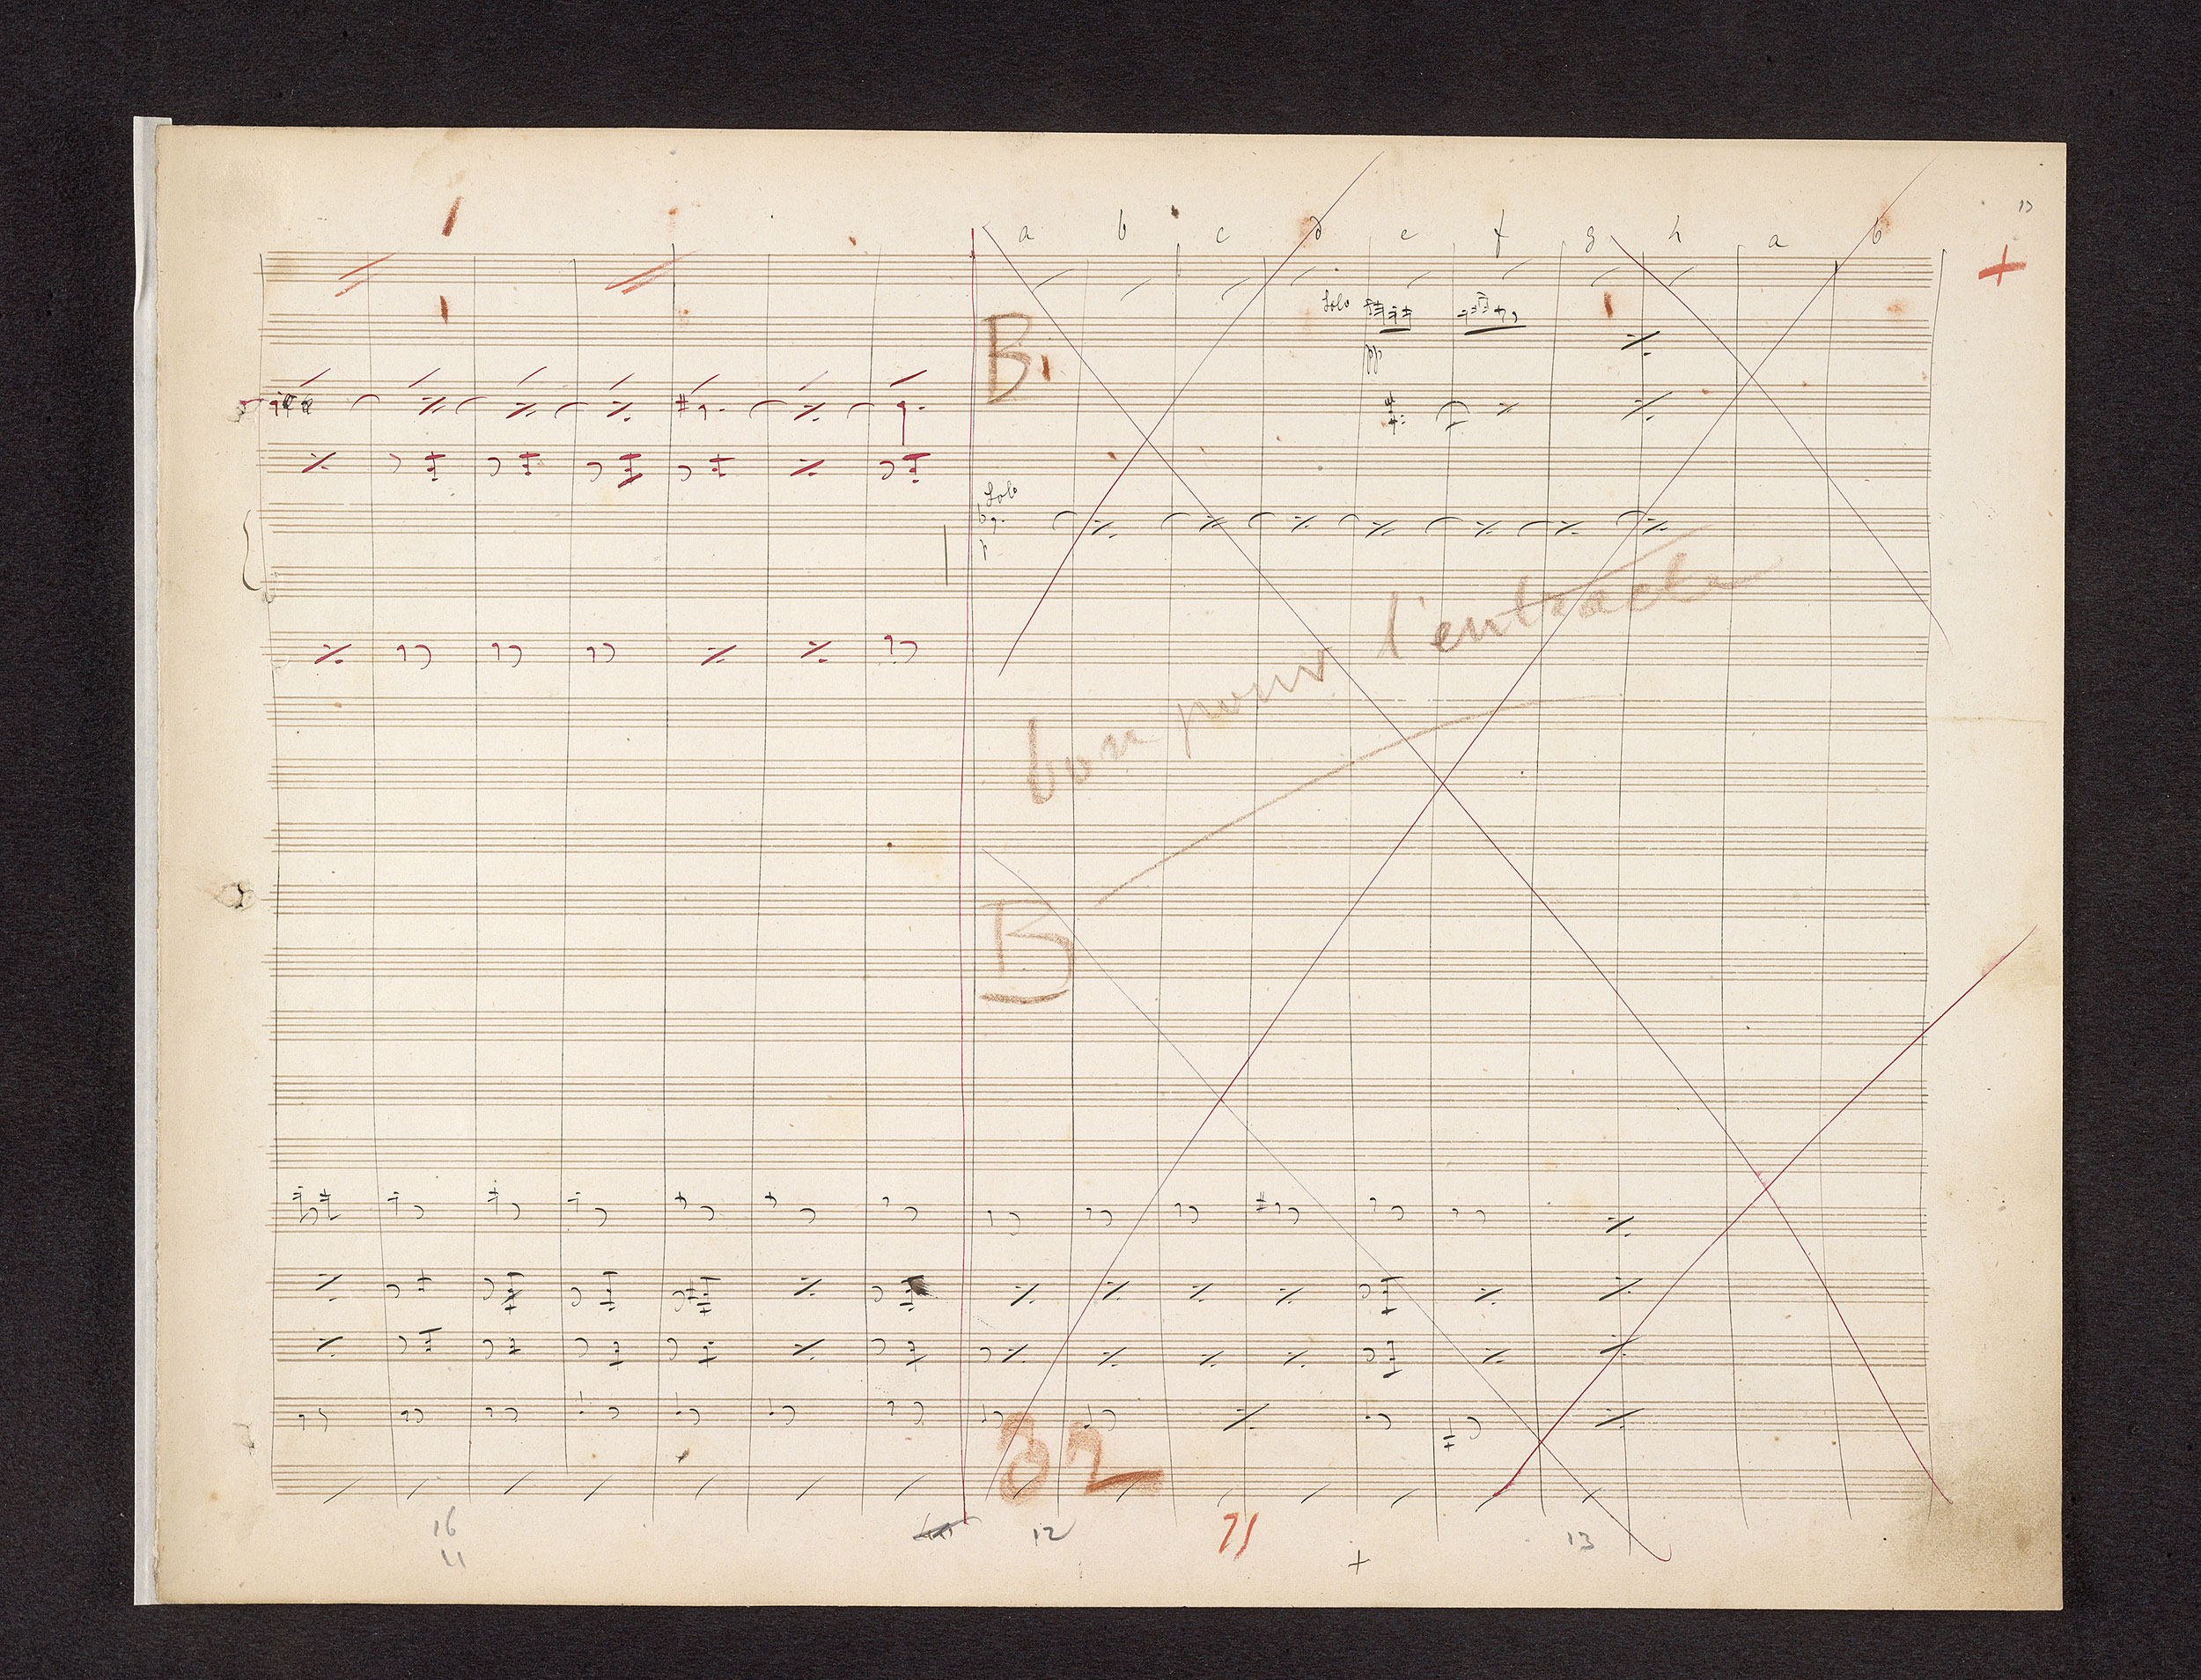 13
a b c d e f g h a b
+
Solo
B
pp
Solo
p
bon pour l'entracte
B
32
16 12 71 13
11 +